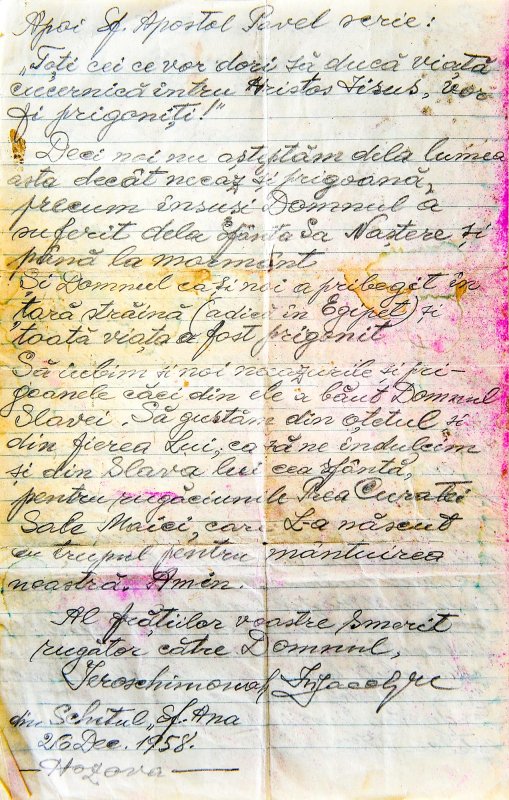 Apoi Sf. Apostol Pavel scrie:
„Toți cei ce vor dori să ducă viață
cucernică întru Hristos Iisus, vor
fi prigoniți!"
Deci noi nu așteptăm dela lumea
asta decât necaz și prigoană,
precum însuși Domnul a
suferit dela Sfânta Sa Naștere și
până la mormânt
Și Domnul ca și noi a pribegit în
țară străină (adică în Egipet) și
toată viața a fost prigonit
Să iubim și noi necazurile și pri-
goanele căci din ele a băut Domnul
Slavei. Să gustăm din oțetul și
din fierea Lui, ca să ne îndulcim
și din Slava lui cea sfântă,
pentru rugăciunile Prea Curatei
Sale Maici, care L-a născut
cu trupul pentru mântuirea
noastră. Amin.
Al frățiilor voastre smerit
rugător către Domnul,
Ieroschimonah
din Schitul „Sf. Ana
26 Dec. 1958.
— Hozeva —